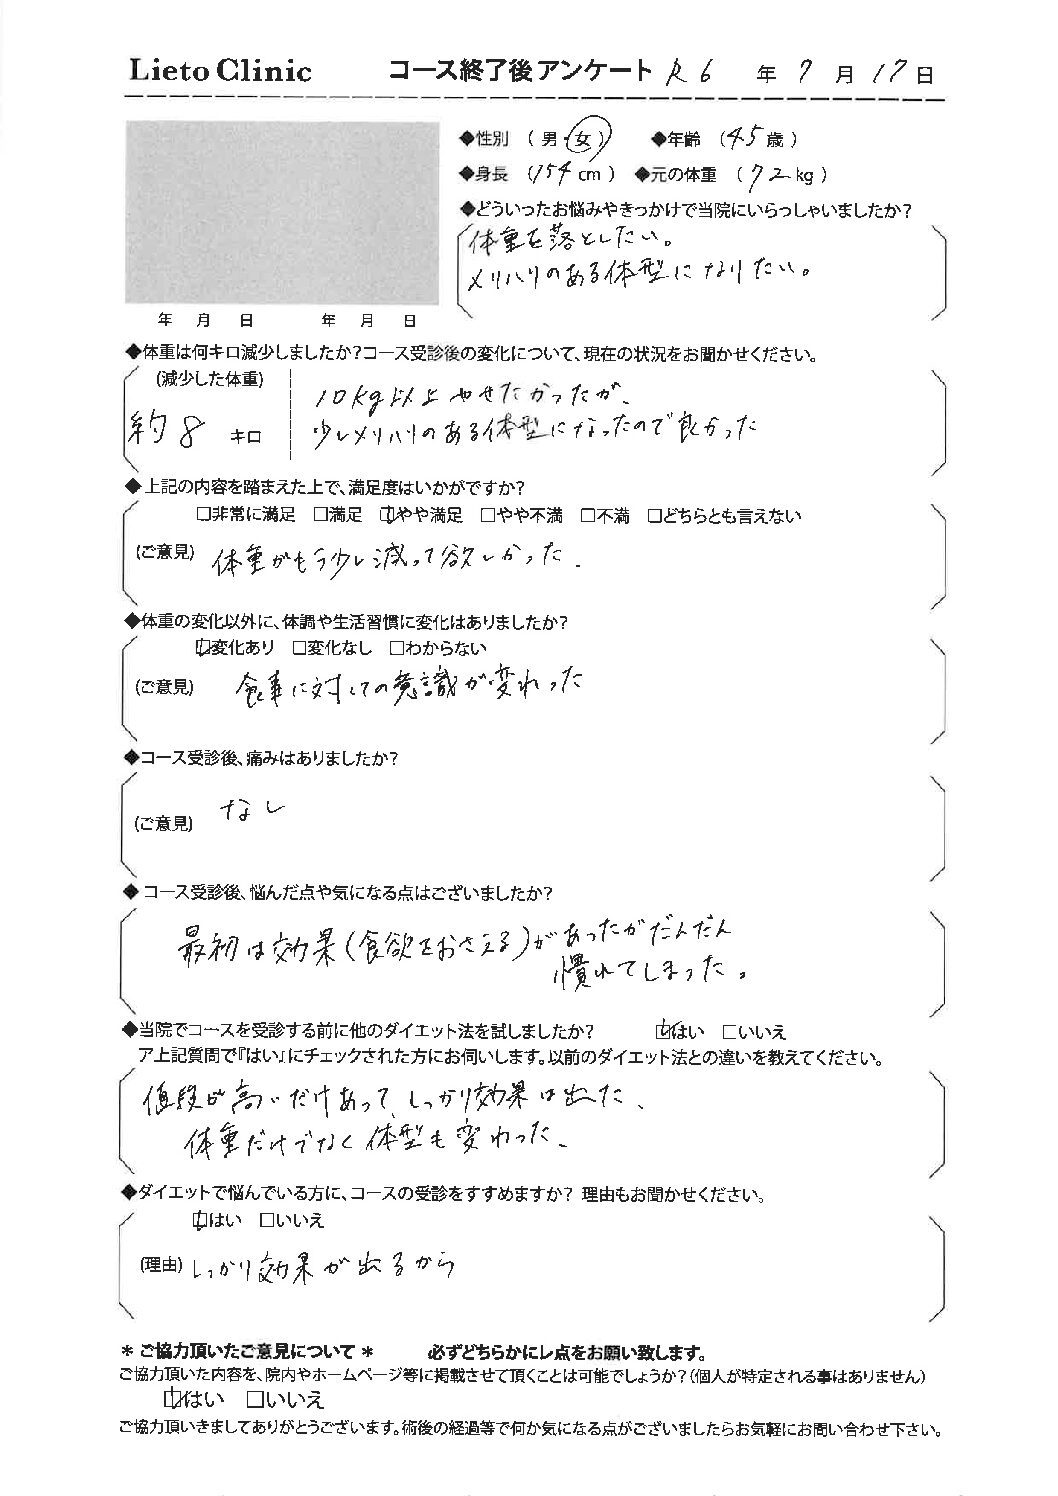 Lieto Clinic コース終了後アンケート R6 年 7 月 17 日
◆性別 （ 男・女 ） ◆年齢 （ 45 歳 ）
◆身長 （ 154 cm ） ◆元の体重 （ 72 kg ）
◆どういったお悩みやきっかけで当院にいらっしゃいましたか?
体重を落としたい。
メリハリのある体型になりたい。
年 月 日 年 月 日
◆体重は何キロ減少しましたか?コース受診後の変化について、現在の状況をお聞かせください。
(減少した体重)
約8 キロ
10kg以上やせたかったが、
少しメリハリのある体型になったので良かった
◆上記の内容を踏まえた上で、満足度はいかがですか?
□非常に満足 □満足 ☑やや満足 □やや不満 □不満 □どちらとも言えない
(ご意見) 体重がもう少し減って欲しかった.
◆体重の変化以外に、体調や生活習慣に変化はありましたか?
☑変化あり □変化なし □わからない
(ご意見) 食事に対しての意識が変わった
◆コース受診後、痛みはありましたか?
(ご意見) なし
◆コース受診後、悩んだ点や気になる点はございましたか?
最初は効果(食欲をおさえる)があったがだんだん
慣れてしまった。
◆当院でコースを受診する前に他のダイエット法を試しましたか? ☑はい □いいえ
ア上記質問で『はい』にチェックされた方にお伺いします。以前のダイエット法との違いを教えてください。
値段が高いだけあって、しっかり効果は出た、
体重だけでなく体型も変わった、
◆ダイエットで悩んでいる方に、コースの受診をすすめますか? 理由もお聞かせください。
☑はい □いいえ
(理由) しっかり効果が出るから
＊ご協力頂いたご意見について＊ 必ずどちらかにレ点をお願い致します。
ご協力頂いた内容を、院内やホームページ等に掲載させて頂くことは可能でしょうか?(個人が特定される事はありません)
☑はい □いいえ
ご協力頂きましてありがとうございます。術後の経過等で何か気になる点がございましたらお気軽にお問い合わせ下さい。